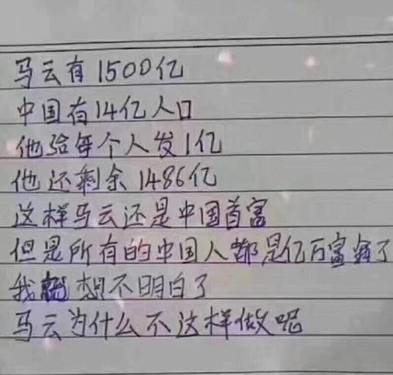 马云有1500亿
中国有14亿人口
他给每个人发1亿
他还剩余1486亿
这样马云还是中国首富
但是所有的中国人都是亿万富翁了
我想不明白了
马云为什么不这样做呢